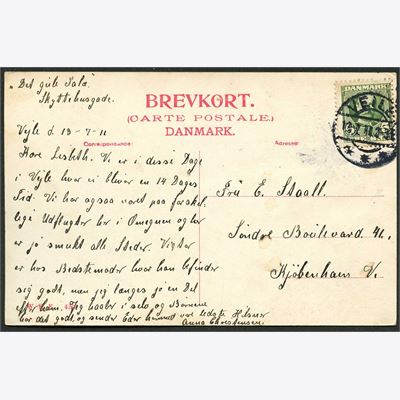 "Det gule Palæ"
Skyttehusgade.
BREVKORT.
(CARTE POSTALE.)
DANMARK.
DANMARK
VEJLE
Vejle d. 13-7-11
Correspondance:
Adresse:
Kære Lisbeth. Vi er i disse Dage
i Vejle hvor vi bliver en 14 Dages
Tid. Vi har ogsaa været paa forskel-
lige Udflugter her i Omegnen og her
er jo smukt alle Steder. Viggo
er hos Bedstemoder hvor han befinder
sig godt, men jeg længes jo en Del
efter ham. Jeg haaber i selv og Børnene
har det godt og sender Eder hermed vor bedste Hilsner
Anna Christensen
Fru E. Staall.
Söndre Boulevard 41,
Kjöbenhavn V.